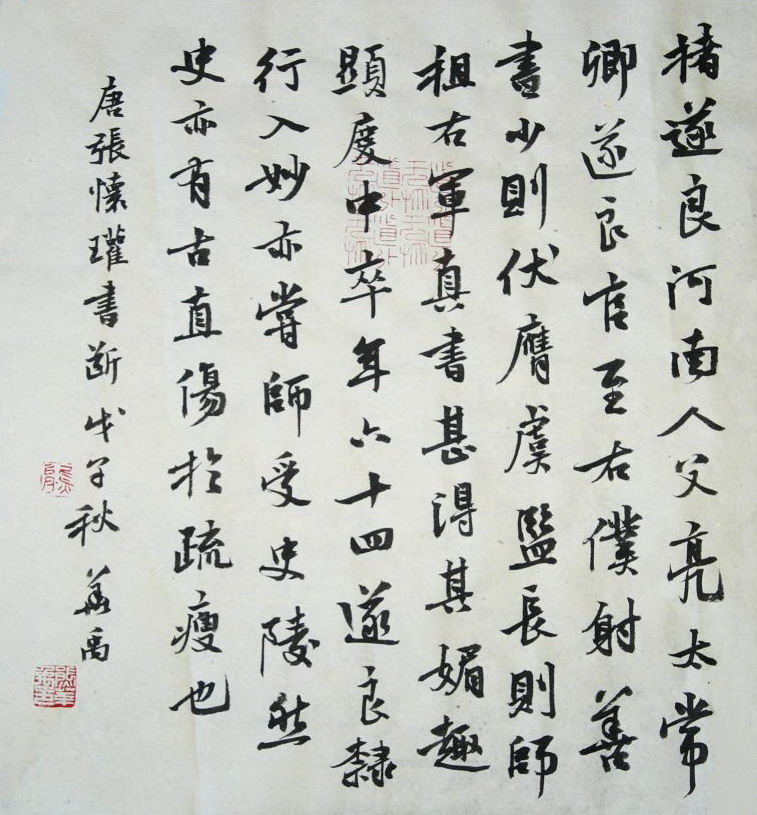 褚遂良河南人父亮太常
卿遂良官至右僕射善
書少則伏膺虞監長則師
祖右軍真書甚得其媚趣
顯慶中卒年六十四遂良隸
行入妙亦嘗師受史陵然
史亦有古直傷於疏瘦也
唐張懷瓘書斷戊子秋
禹